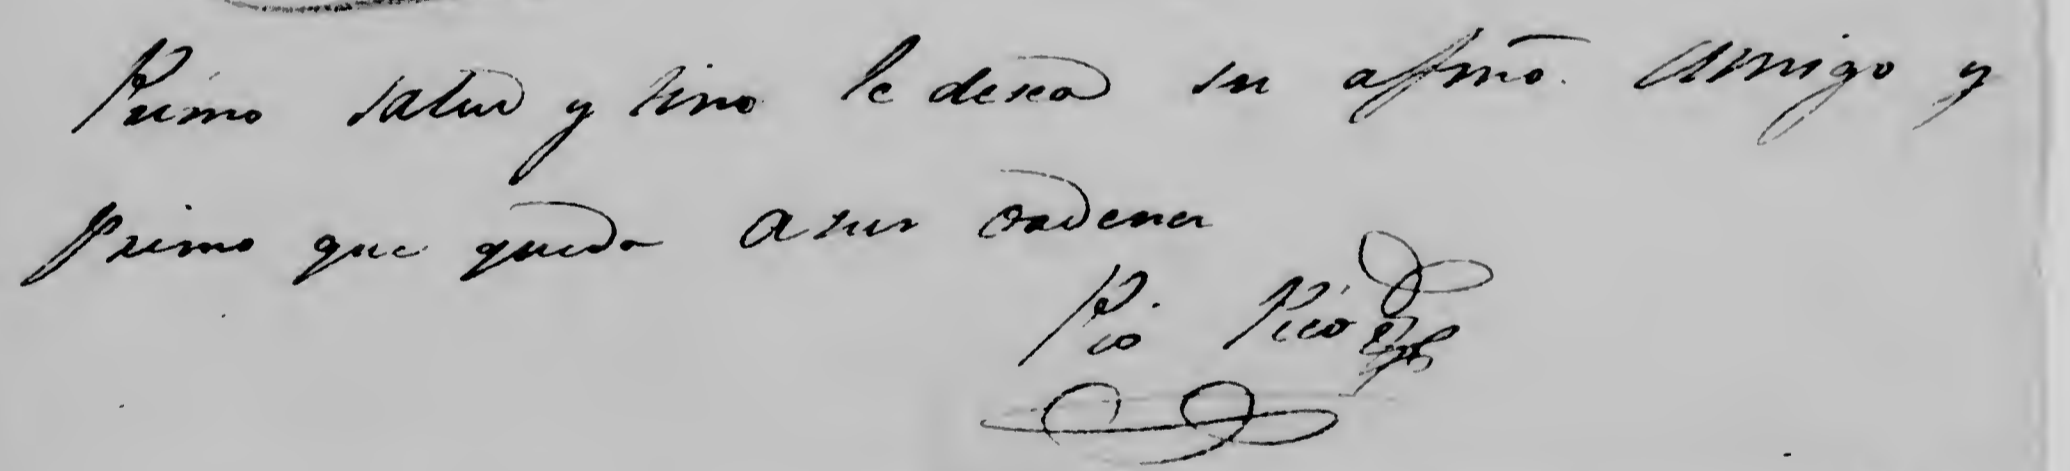 Primo salud y tino le desea su afmō. amigo y
primo que queda a sus ordenes
Pio Pico